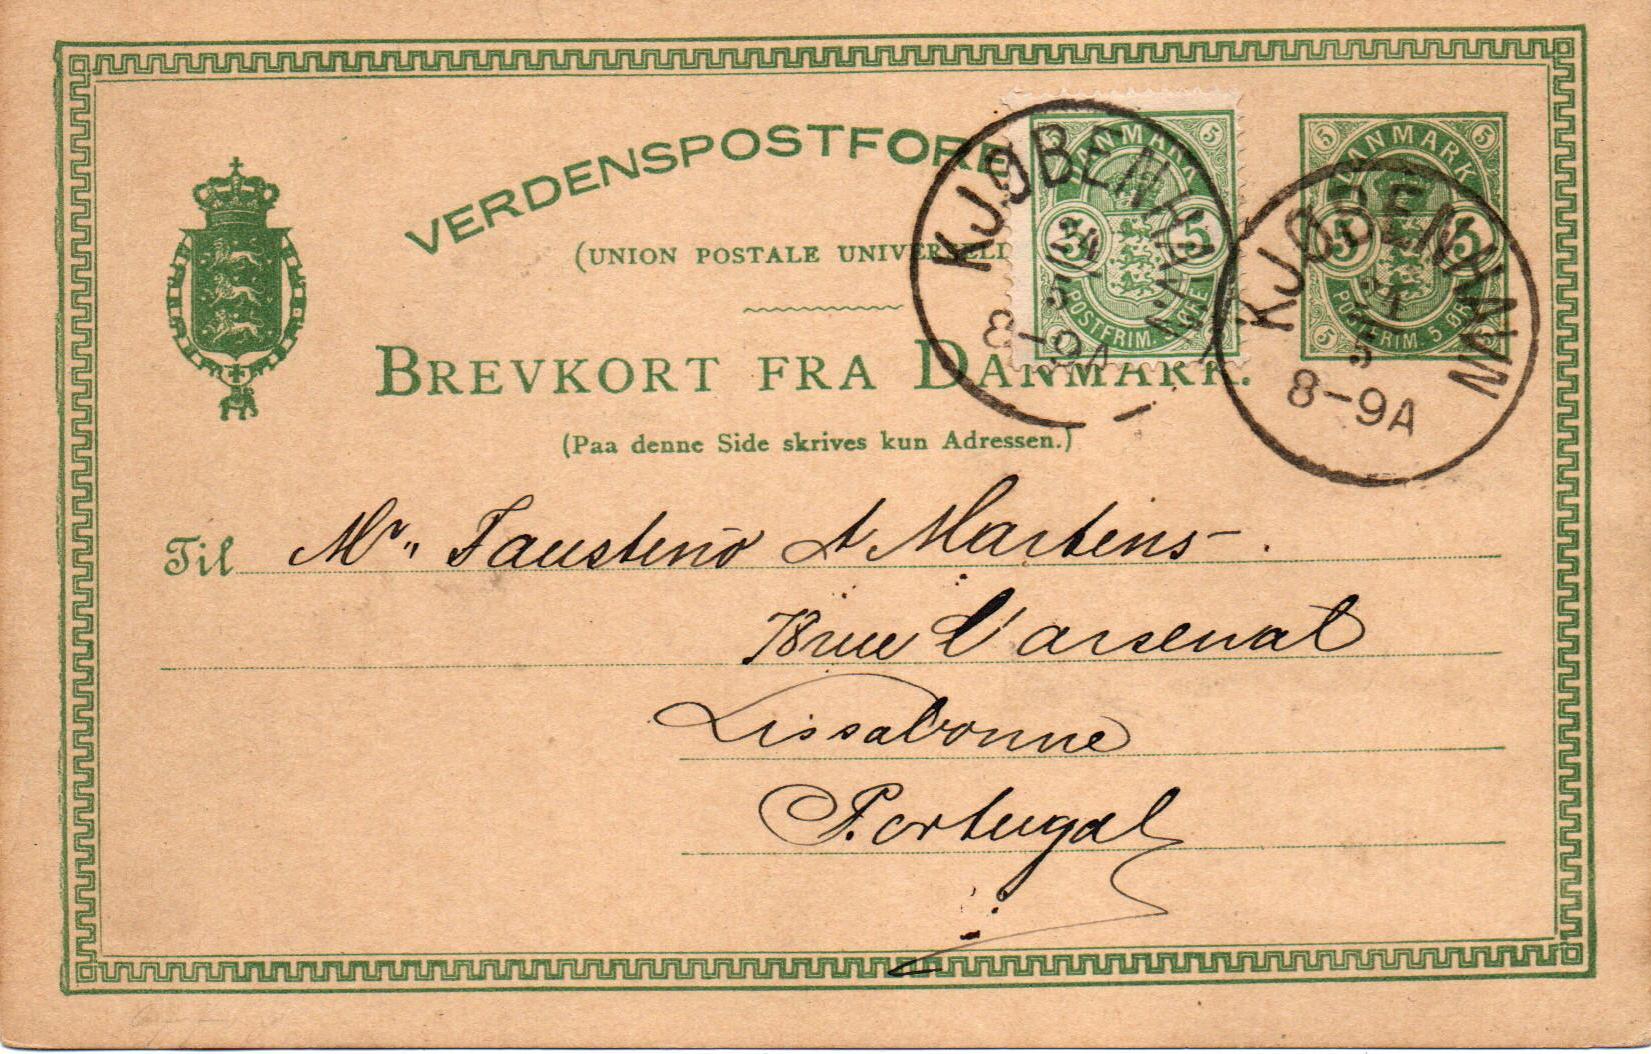 VERDENSPOSTFORE
(UNION POSTALE UNIVERSELL
BREVKORT FRA DANMARK.
(Paa denne Side skrives kun Adressen.)
5 DANMARK 5
5 5
POSTFRIM. 5 ØRE
KJØBENHAVN
24
5
8-9A
5 DANMARK 5
5 5
5 POSTFRIM. 5 ØRE 5
KJØBENHAVN
24
5
8-9A
Til Mr. Faustino A Martins.
78 rue L'arsenal
Lissabonne
Portugal